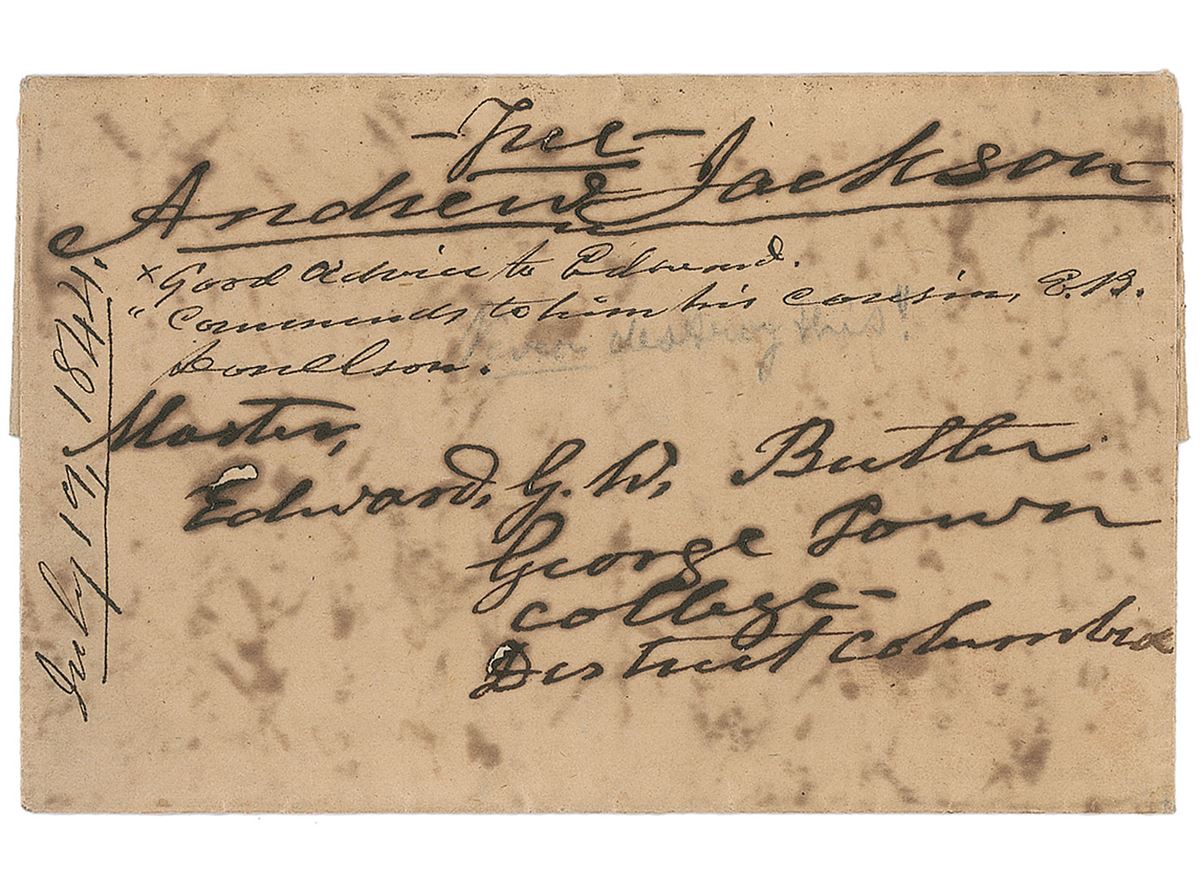 - Free -
Andrew Jackson
× Good Advice to Edward.
" Commends to him his cousin, E.B.
Donelson.
Never destroy this!
Master,
Edward, G. W, Butler
George Town
College -
District Columbia
July 19, 1844.